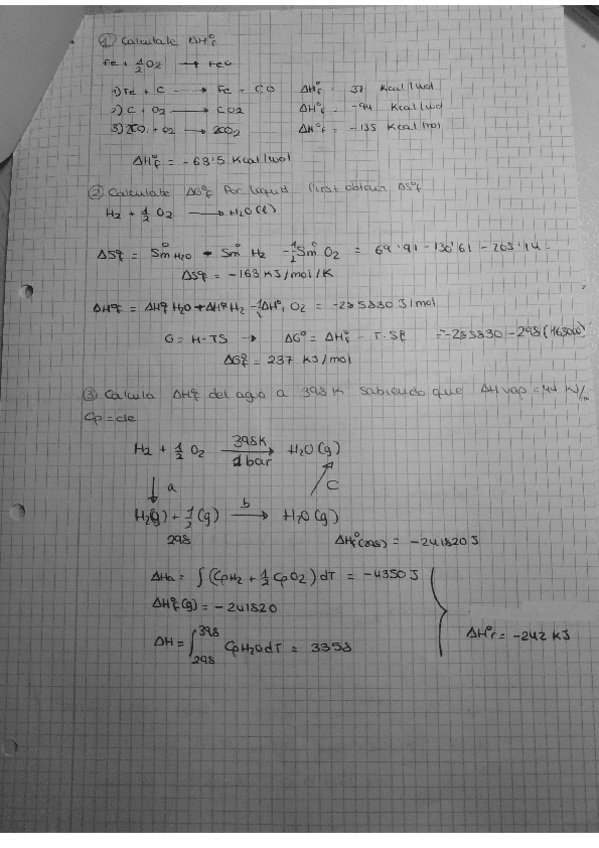 ① Calculate ΔH°f
Fe + 1/2 O2 → FeO
1) Fe + C → Fe + CO ΔH°f = 37 Kcal/mol
2) C + O2 → CO2 ΔH°f = -94 Kcal/mol
3) 2CO + O2 → 2CO2 ΔH°f = -135 Kcal/mol
ΔH°f = -63'5 Kcal/mol
② Calculate ΔG°f for liquid first obtain ΔS°f
H2 + 1/2 O2 → H2O(l)
ΔS°f = S°m H2O + S°m H2 - 1/2 S°m O2 = 69'91 - 130'61 - 203'14
ΔS°f = -163 KJ/mol/K
ΔH°f = ΔH°f H2O + ΔH°f H2 - 1/2 ΔH°f O2 = -285830 J/mol
G = H-TS → ΔG° = ΔH°f - T·S°f = -285830 - 298
ΔG°f = 237 KJ/mol
③ Calcula ΔH°f del agua a 398 K sabiendo que ΔHvap = 44 KJ/
Cp = cte
H2 + 1/2 O2 398K → H2O(g)
1 bar
↓ a C
H2(g) + 1/2 (g) b → H2O(g)
298
ΔH°f(298) = -241820 J
ΔHa = ∫ (CpH2 + 1/2 CpO2) dT = -4350 J
ΔH°f(g) = -241820
ΔH°r = -242 KJ
ΔH = ∫ 398 298 CpH2O dT = 3358